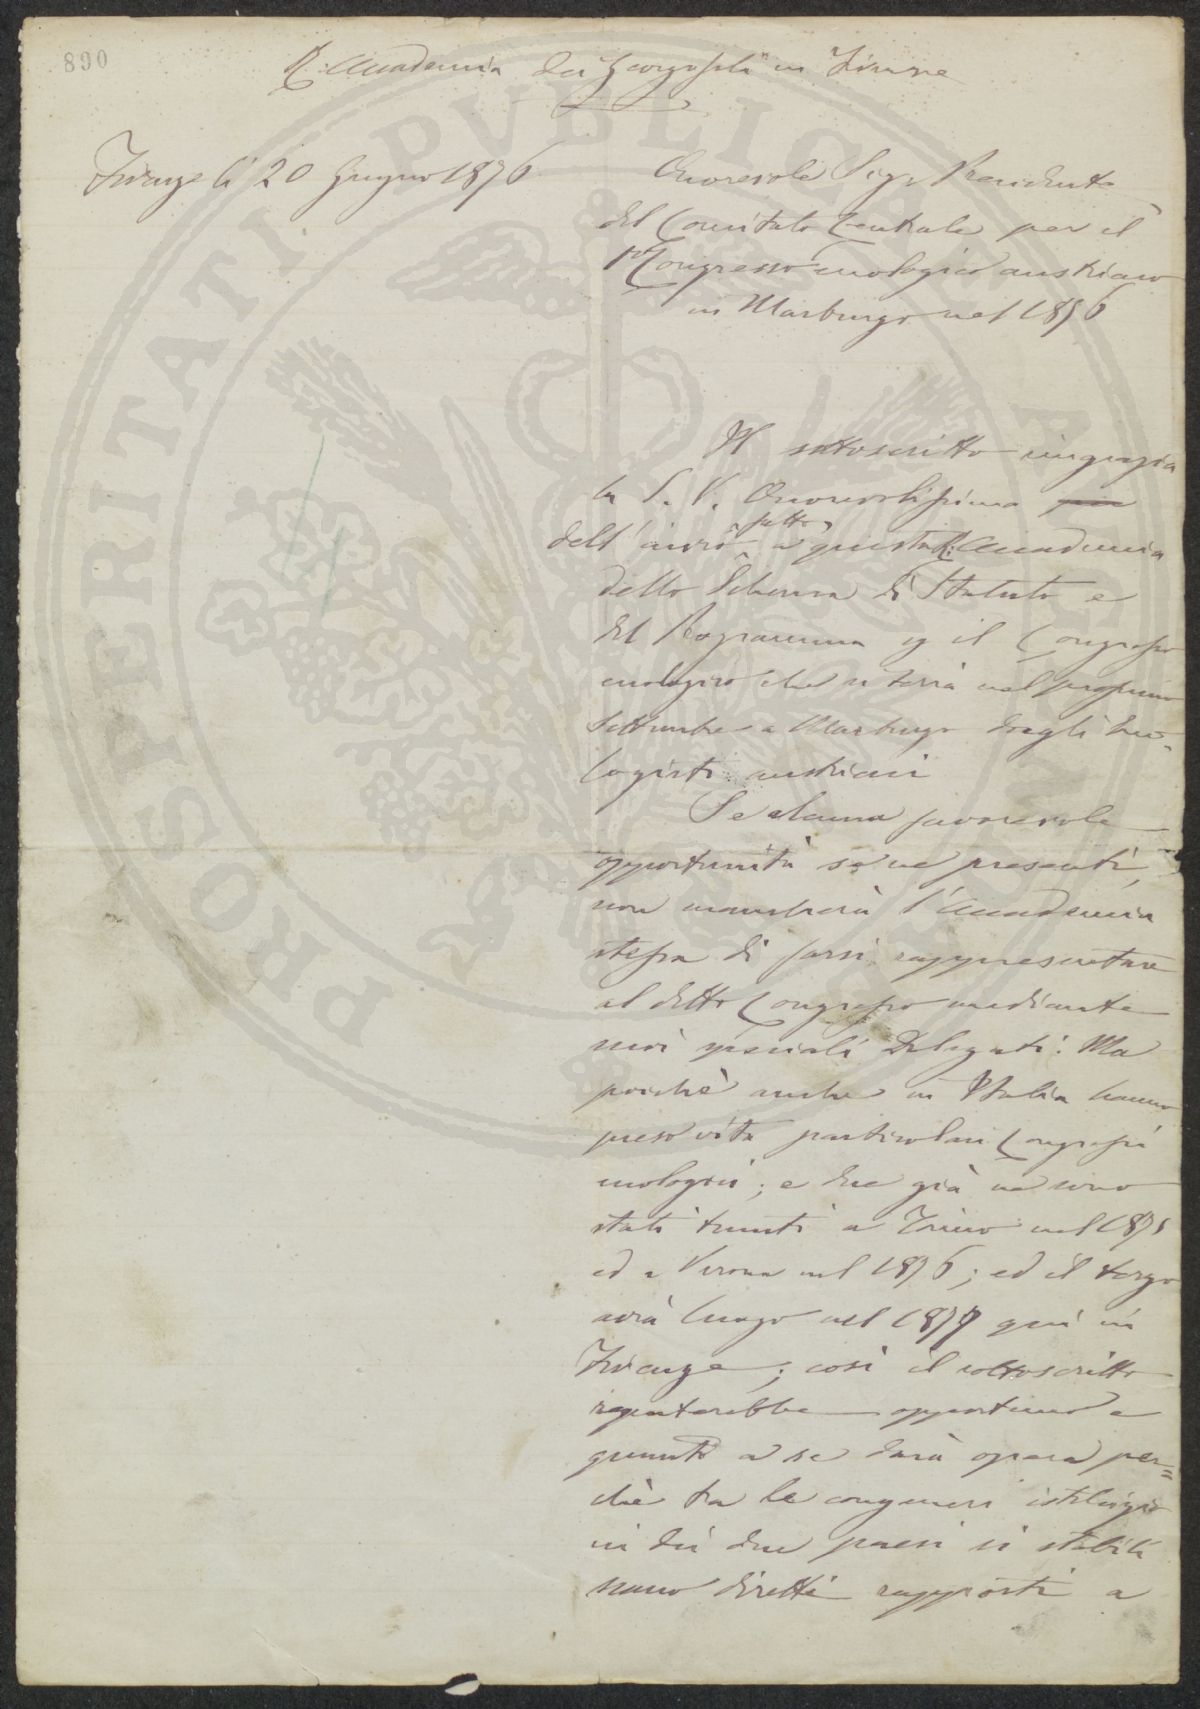 890
R. Accademia dei Georgofili in Firenze
Firenze li 20 Giugno 1876
Onorevole Sigr Presidente
del Comitato Centrale per il
1º Congresso enologico austriaco
in Marburgo nel 1876
Il sottoscritto ringrazia
la S. V. Onorevolissima
dell' invio fatto a questa R. Accademia
dello Schema di Statuto e
del Programma p il Congresso
enologico che si terrà nel prossimo
Settembre a Marburgo dagli Eno-
logisti austriaci
Se alcuna favorevole
opportunità se ne presenti,
non mancherà l'Accademia
stessa di farsi rappresentare
al detto Congresso mediante
suoi speciali Delegati. Ma
poichè anche in Italia hanno
preso vita particolari Congressi
enologici; e due già ne sono
stati tenuti a Torino nel 1875
ed a Verona nel 1876; ed il terzo
avrà luogo nel 1877 quì in
Firenze; così il sottoscritto
reputerebbe opportuno e
quanto a se darà opera per=
chè tra le congeneri istituzio
ni dei due paesi si stabili
scano diretti rapporti a
PROSPERITATI PVBLICAE AVGENDAE